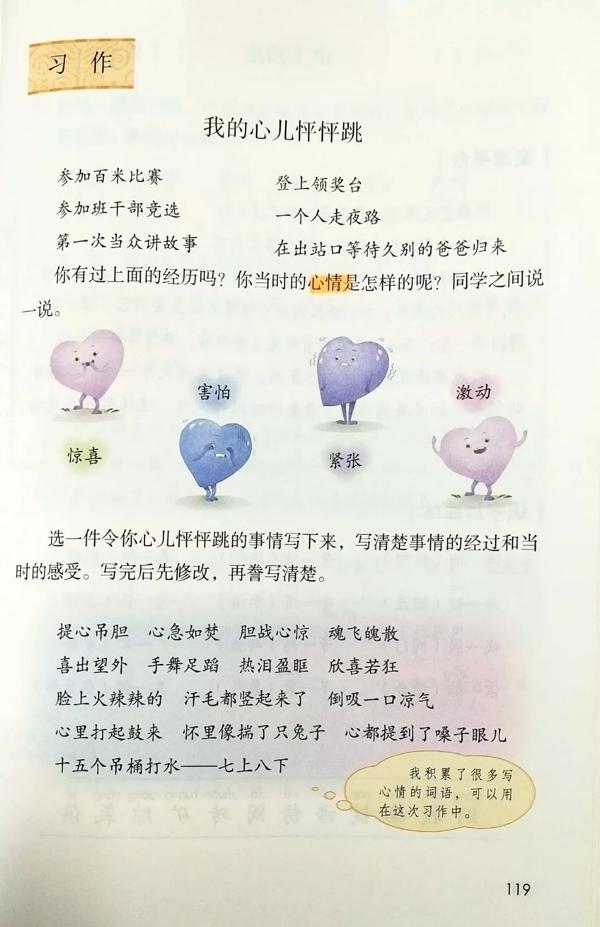 习作
我的心儿怦怦跳
参加百米比赛
登上领奖台
参加班干部竞选
一个人走夜路
第一次当众讲故事
在出站口等待久别的爸爸归来
你有过上面的经历吗？你当时的心情是怎样的呢？同学之间说
一说。
害怕
激动
惊喜
紧张
选一件令你心儿怦怦跳的事情写下来，写清楚事情的经过和当
时的感受。写完后先修改，再誊写清楚。
提心吊胆 心急如焚 胆战心惊 魂飞魄散
喜出望外 手舞足蹈 热泪盈眶 欣喜若狂
脸上火辣辣的 汗毛都竖起来了 倒吸一口凉气
心里打起鼓来 怀里像揣了只兔子 心都提到了嗓子眼儿
十五个吊桶打水——七上八下
我积累了很多写
心情的词语，可以用
在这次习作中。
119